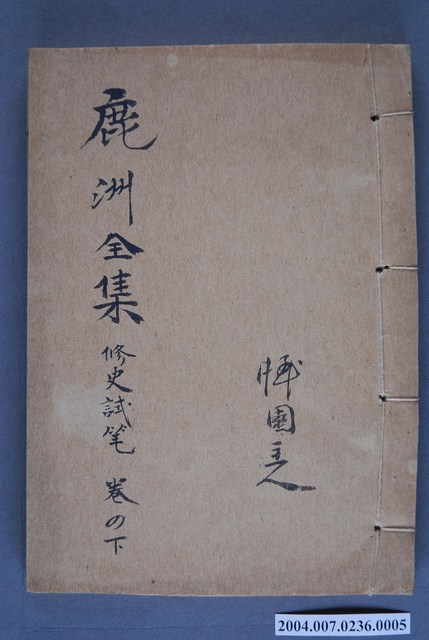 鹿洲全集 修史試笔 卷の下
園主人
2004.007.0236.0005